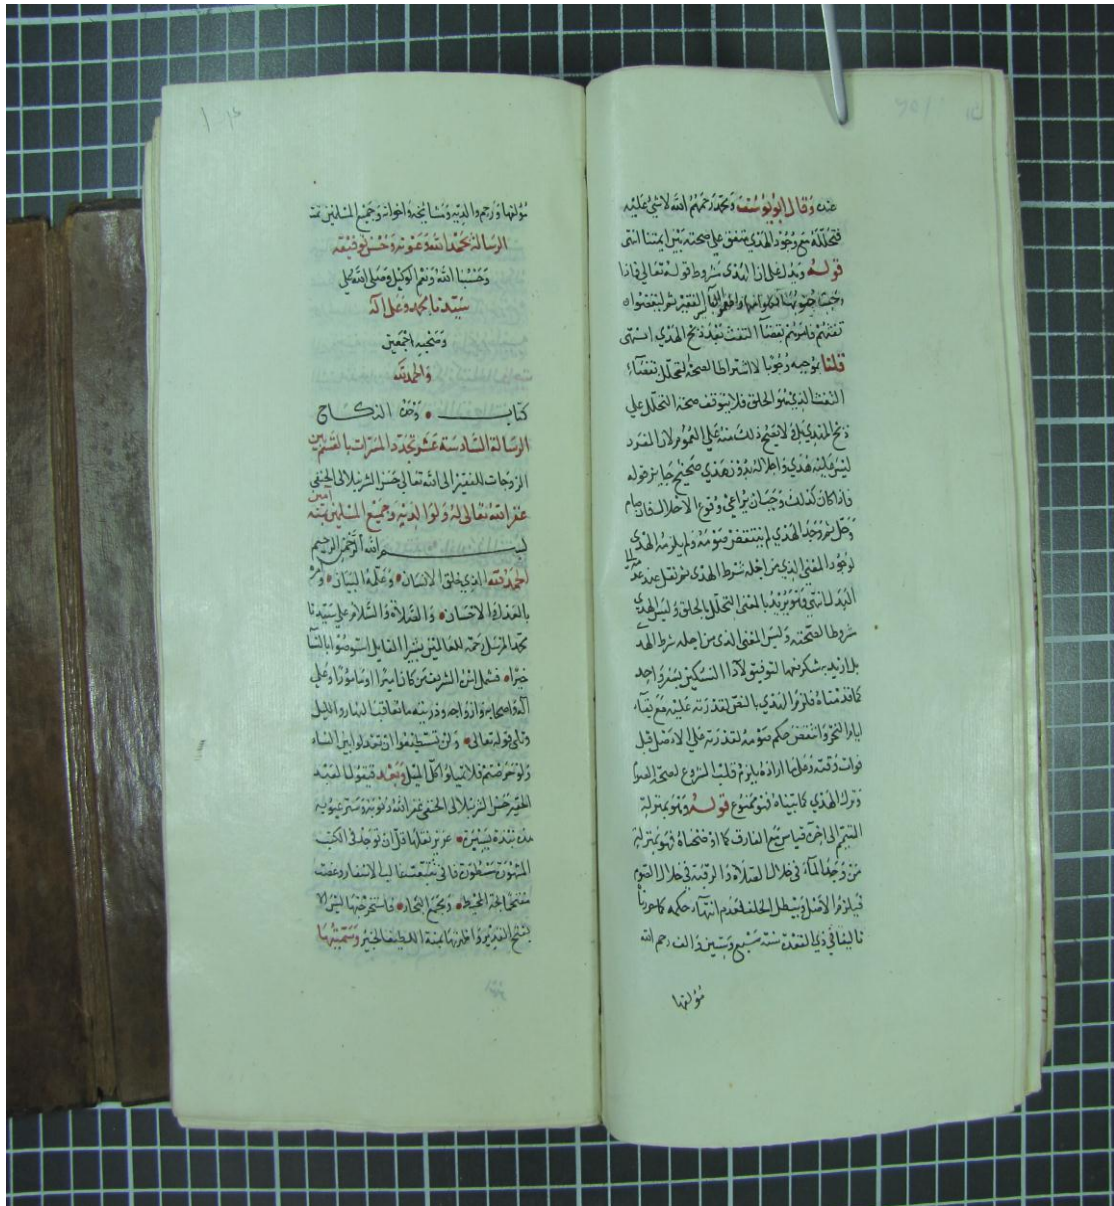 عنده وقال ابو يوسف ومحمد رحمهم الله لا شي عليه
فتحلله مع وجود الهدي متفق على صحته بين ايمتنا انتهى
قوله ويدل على ان الهدي شروط قوله تعالى فاذا
وجبت جنوبها فكلوا منها واطعموا الفقير ثم ليقضوا
تفثهم فامرهم بقضآ التفث بعد ذبح الهدي انتهى
قلنا بموجبه وجوبا لا اشتراطا لصحة التحلل بقضاء
التفث الذي هو الحلق فلا يتوقف صحة التحلل علي
ذبح الهدي بل ولا يصح ذلك منه علي العموم لان المفرد
ليس عليه هدي واحلاله بدون هدي صحيح جايز قوله
فاذا كان كذلك وجب ان يراعي وقوع الاحلال فان صام
وحل ثم وجد الهدي لم ينتقض صومه ولم يلزمه الهدي
لوجود المعنى الذي من اجله شرط الهدي ثم نقل عند عدمه الى
البدل انتهى فهو يريد بالمعنى التحلل بالحلق وليس الهدي
شروطا لصحته وليس المعنى الذي من اجله شرط الهدي
بل اريد به شكر نعمة التوفيق لادآ النسكين بسفر واحد
كما قدمناه فلزم الهدي بالنص لقدرته عليه مع بقآء
ايام النحر وانتقض حكم صومه لقدرته علي الاصل قبل
فوات وقته وعلى ما اراده يلزم قلب المشروع لصحة الصوم
وترك الهدي كما بيناه فهو ممنوع قوله وهو بمنزلة
التيمم الى اخره قياس مع الفارق كما اوضحناه فهو بمنزلة
من وجد المآء في خلال الصلاة والرقبة في خلال الصوم
فيلزم الاصل ويبطل الخلف لعدم انتهآء حكمه كما حررنا
تاليفا في ذي القعدة سنة سبع وستين والف رحم الله
مؤلفها
مؤلفها ورحم والديه ومشايخه واخوانه وجميع المسلمين تمت
الرسالة بحمد الله وعونه وحسن توفيقه
وحسبنا الله ونعم الوكيل وصلى الله على
سيدنا محمد وعلى اله
وصحبه اجمعين
والحمد لله
كتاب النكاح
الرسالة السادسة عشر تجدد المسرات بالقسم بين
الزوجات للفقير الى الله تعالى حسن الشرنبلالي الحنفي
غفر الله تعالى له ولوالديه وجميع المسلمين بمنه امين
بسم الله الرحمن الرحيم
الحمد لله الذي خلق الانسان وعلمه البيان وامر
بالعدل والاحسان والصلاة والسلام علي سيدنا
محمد المرسل رحمة للعالمين بشيرا القايل استوصوا بالنسآ
خيرا فشمل امره الشريف من كان اميرا او مامورا وعلي
آله واصحابه وازواجه وذريته ما تعاقب النهار والليل
وتلي قوله تعالى ولن تستطيعوا ان تعدلوا بين النسآء
ولو حرصتم فلا تميلوا كل الميل وبعد فيقول العبد
الحقير حسن الشرنبلالي الحنفي غفر الله ذنوبه وستر عيوبه
هذه نبذة يسيرة عزيز نقلها قل ان توجد في الكتب
المشهورة مسطورة فاني تتبعت غالب الاسفار وغصت
مقتحما لجة المحيط ومجمع البحار فاستخرجتها ليسر الا
بفتح القدير واظهرتها بمنة اللطيف الخبير وسميتها